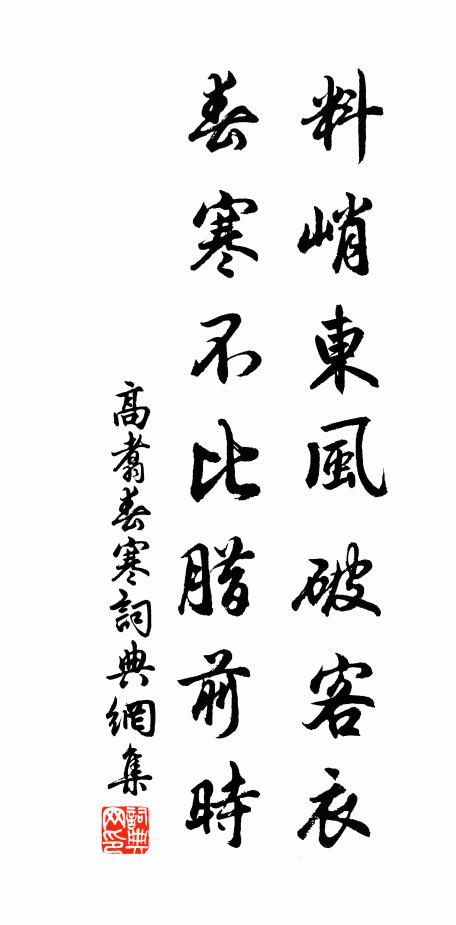 料峭東風破客衣
春寒不比腊前時
高翥春寒詞典網集
詞典
网印